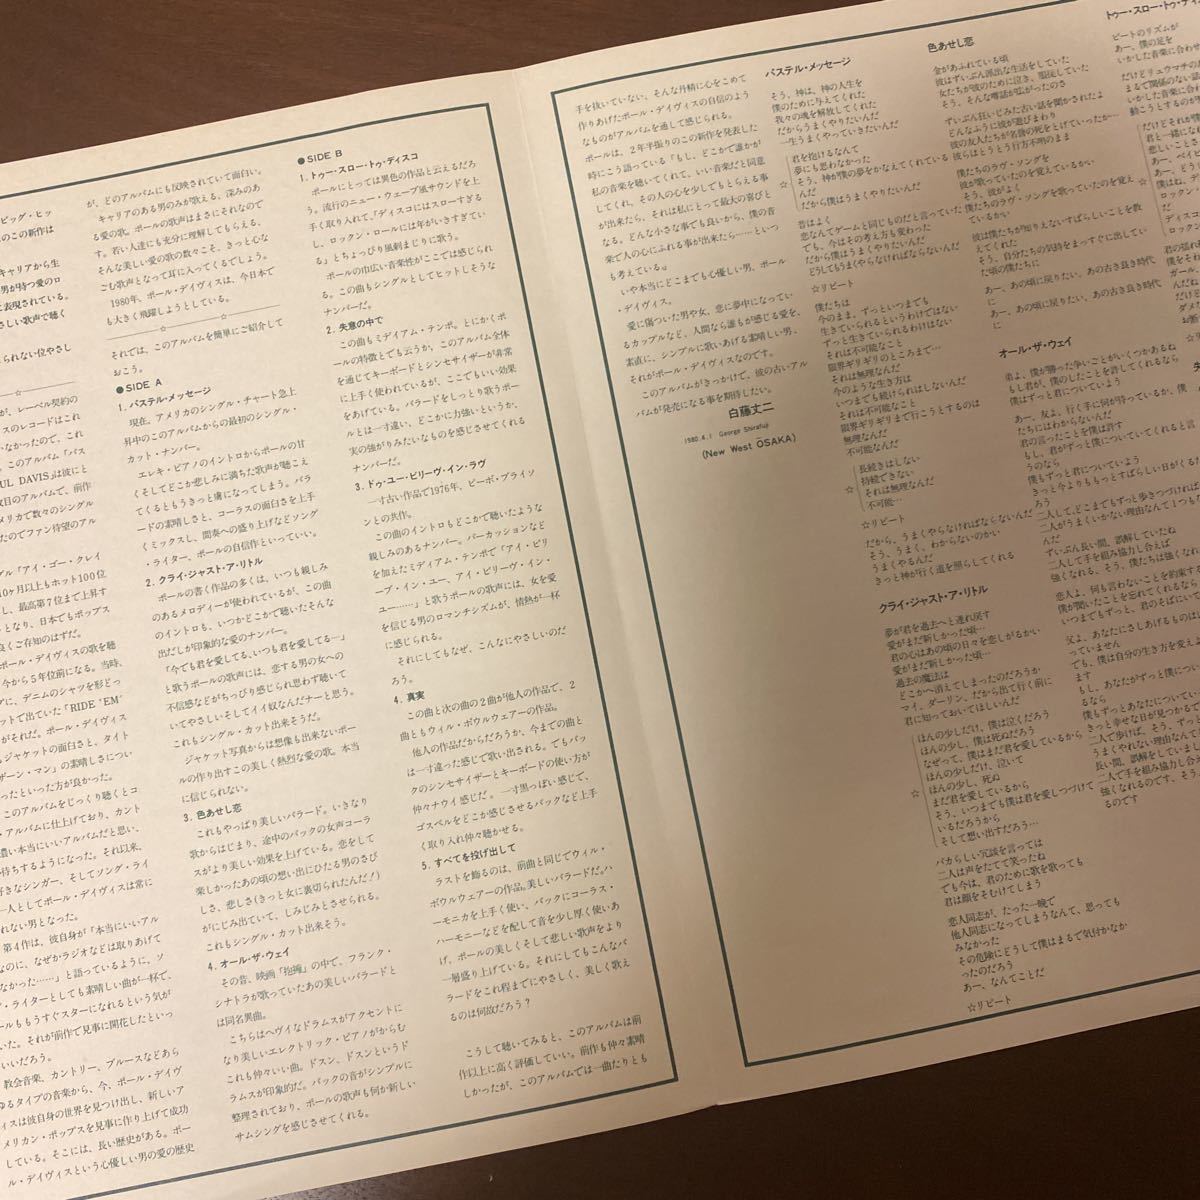 ピッグ・ヒッ
のこの新作は
キャリアから生
男が持つ愛のロ
に表現されている。
さしい歌声で聴く
られない位やさし
が、レーベル契約の
スのレコードはこれ
いなかったので、これ
。このアルバム「パス
UL DAVIS」は彼にと
枚目のアルバムで、前作
メリカで数々のシングル
たのでファン待望のアル
グル「アイ・ゴー・クレイ
10ヶ月以上もホット100位
し、最高第7位まで上昇す
となり、日本でもポップス
良くご存知のはずだ。
ポール・デイヴィスの歌を聴
今から5年位前になる。当時、
に、デニムのシャツを形どっ
ットで出ていた「RIDE 'EM
がそれだ。ポール・デイヴィス
ジャケットの面白さと、タイト
ザーン・マン」の素晴しさについ
ったといった方が良かった。
このアルバムをじっくり聴くとコ
・アルバムに仕上げており、カント
濃い本当にいいアルバムだと思い、
待ちするようになった。それ以来、
好きなシンガー、そしてソング・ライ
一人としてポール・デイヴィスは常に
れない男となった。
第4作は、彼自身が「本当にいいアル
なのに、なぜかラジオなどは取りあげて
なかった……」と語っているように、ソ
・ライターとしても素晴しい曲が一杯で、
ールももうすぐスターになれるという気が
いた。それが前作で見事に開花したといっ
いいだろう。
教会音楽、カントリー、ブルースなどあら
ゆるタイプの音楽から、今、ポール・デイヴ
ィスは彼自身の世界を見つけ出し、新しいア
メリカン・ポップスを見事に作り上げて成功
している。そこには、長い歴史がある。ポー
ル・デイヴィスという心優しい男の愛の歴史
が、どのアルバムにも反映されていて面白い。
キャリアのある男のみが歌える、深みのあ
る愛の歌。ポールの歌声はまさにそれなので
す。若い人達にも充分に理解してもらえる、
そんな美しい愛の歌の数々こそ、きっと心な
ごむ歌声となって耳に入ってくるでしょう。
1980年、ポール・デイヴィスは、今日本で
も大きく飛躍しようとしている。
☆ ☆
それでは、このアルバムを簡単にご紹介して
おこう。
●SIDE A
1. パステル・メッセージ
現在、アメリカのシングル・チャート急上
昇中のこのアルバムからの最初のシングル・
カット・ナンバー。
エレキ・ピアノのイントロからポールの甘
くそしてどこか悲しみに満ちた歌声が聴こえ
てくるともうきっと虜になってしまう。バラ
ードの素晴しさと、コーラスの面白さを上手
くミックスし、間奏への盛り上げなどソング
・ライター、ポールの自信作といっていい。
2. クライ・ジャスト・ア・リトル
ポールの書く作品の多くは、いつも親しみ
のあるメロディーが使われているが、この曲
のイントロも、いつかどこかで聴いたそんな
出だしが印象的な愛のナンバー。
「今でも君を愛してる、いつも君を愛してる…」
と歌うポールの歌声には、恋する男の女への
不信感などがちっぴり感じられ思わず聴いて
いてやさしいそしてイイ奴なんだナーと思う。
これもシングル・カット出来そうだ。
ジャケット写真からは想像も出来ないポー
ルの作り出すこの美しく熱烈な愛の歌。本当
に信じられない。
3. 色あせし恋
これもやっぱり美しいバラード。いきなり
歌からはじまり、途中のバックの女声コーラ
スがより美しい効果を上げている。恋をして
楽しかったあの頃の想い出にひたる男のさび
しさ、悲しさ(きっと女に裏切られたんだ!)
がにじみ出ていて、しみじみとさせられる。
これもシングル・カット出来そう。
4. オール・ザ・ウェイ
その昔、映画「抱擁」の中で、フランク・
シナトラが歌っていたあの美しいバラードと
は同名異曲。
こちらはヘヴィなドラムスがアクセントに
なり美しいエレクトリック・ピアノがからむ
これも仲々いい曲。ドスン、ドスンというド
ラムスが印象的だ。バックの音がシンプルに
整理されており、ポールの歌声も何か新しい
サムシングを感じさせてくれる。
●SIDE B
1. トゥー・スロー・トゥ・ディスコ
ポールにとっては異色の作品と云えるだろ
う。流行のニュー・ウェーブ風サウンドを上
手く取り入れて、「ディスコにはスローすぎる
し、ロックン・ロールには年がいきすぎてい
る」とちょっぴり風刺まじりに歌う。
ポールの巾広い音楽性がここでは感じられ
る。この曲もシングルとしてヒットしそうな
ナンバーだ。
2. 失意の中で
この曲もミディアム・テンポ。とにかくポ
ールの特徴とでも云うか、このアルバム全体
を通じてキーボードとシンセサイザーが非常
に上手く使われているが、ここでもいい効果
をあげている。バラードをしっとり歌うポー
ルとは一寸違い、どこかに力強いというか、
実の強がりみたいなものを感じさせてくれる
ナンバーだ。
3. ドゥ・ユー・ビリーヴ・イン・ラヴ
一寸古い作品で1976年、ピーボ・ブライソ
ンとの共作。
この曲のイントロもどこかで聴いたような
親しみのあるナンバー。パーカッションなど
を加えたミディアム・テンポで「アイ・ビリ
ーブ・イン・ユー、アイ・ビリーヴ・イン・
ユー……」と歌うポールの歌声には、女を愛
を信じる男のロマンチシズムが、情熱が一杯
に感じられる。
それにしてもなぜ、こんなにやさしいのだ
ろう。
4. 真実
この曲と次の曲の2曲が他人の作品で、2
曲ともウィル・ボウルウェアーの作品。
他人の作品だからだろうか、今までの曲と
は一寸違った感じで歌い出される。でもバッ
クのシンセサイザーとキーボードの使い方が
仲々ナウイ感じだ。一寸黒っぽい感じで、
ゴスペルをどこか感じさせるバックなど上手
く取り入れ仲々聴かせる。
5. すべてを投げ出して
ラストを飾るのは、前曲と同じでウィル・
ボウルウェアーの作品。美しいバラードだ。ハ
ーモニカを上手く使い、バックにコーラス・
ハーモニーなどを配して音を少し厚く使いあ
げ、ポールの美しくそして悲しい歌声をより
一層盛り上げている。それにしてもこんなバ
ラードをこれ程までにやさしく、美しく歌え
るのは何故だろう?
こうして聴いてみると、このアルバムは前
作以上に高く評価していい。前作も仲々素晴
しかったが、このアルバムでは一曲たりとも
手を抜いていない、そんな丹精に心をこめて
作りあげたポール・デイヴィスの自信のよう
なものがアルバムを通して感じられる。
ポールは、2年半振りのこの新作を発表した
時にこう語っている「もし、どこかで誰かが
私の音楽を聴いてくれて、いい音楽だと同意
してくれ、その人の心を少しでもとらえる事
が出来たら、それは私にとって最大の喜びと
なる。どんな小さな事でも良いから、僕の音
楽で人の心にふれる事が出来たら……といつ
も考えている。」
いや本当にどこまでも心優しい男、ポール
・デイヴィス。
愛に傷ついた男や女、恋に夢中になってい
るカップルなど、人間なら誰もが感じる愛を、
素直に、シンプルに歌いあげる素晴しい男、
それがポール・デイヴィスなのです。
このアルバムがきっかけで、彼の古いアル
バムが発売になる事を期待したい。
白藤丈二
1980.4.1 George Shirafuji
(New West OSAKA)
パステル・メッセージ
そう、神は、神の人生を
僕のために与えてくれた
我々の魂を解放してくれた
だからうまくやりたいんだ
一生うまくやっていきたいんだ
君を抱けるなんて
夢にも思わなかった
☆ そう、神が僕の夢をかなえてくれている
んだ
だから僕はうまくやりたいんだ
昔はよく
恋なんてゲームと同じものだと言っていた
でも、今はその考え方も変わった
だから僕はうまくやりたいんだ
どうしてもうまくやらなければならないんだ
☆リピート
僕たちは
今のまま、ずっといつまでも
生きていられるというわけではない
ずっと生きていられるわけはない
それは不可能なこと
限界ギリギリのところまで…
それは無理なんだ
今のような生き方は
いつまでも続けられはしない
それは不可能なこと
限界ギリギリまで行こうとするのは
無理なんだ
不可能なんだ
長続きはしない
持続できない
☆ それは無理なんだ
不可能…
☆リピート
だから、うまくやらなければならないんだ
そう、うまく、わからないのかい
うまくやるんだ
きっと神が行く道を照らしてくれる
クライ・ジャスト・ア・リトル
夢が君を過去へと連れ戻す
愛がまだ新しかった頃…
君の心はあの頃の日々を恋しがるかい
愛がまだ新しかった頃…
過去の魔法は
どこかへ消えてしまったのだろうか
マイ、ダーリン、だから出て行く前に
君に知っておいてほしいんだ
ほんの少しだけ、僕は泣くだろう
ほんの少し、僕は死ぬだろう
なぜって、僕はまだ君を愛しているから
ほんの少しだけ、泣いて
☆ ほんの少し、死ぬ
まだ君を愛しているから
そう、いつまでも僕は君を愛しつづけて
いるだろうから
そして想い出すだろう…
バカらしい冗談を言っては
二人は声をたてて笑ったね
でも今は、君のために歌を歌っても
君は顔をそむけてしまう
恋人同志が、たった一晩で
他人同志になってしまうなんて、思っても
みなかった
その危険にどうして僕はまるで気付かなか
ったのだろう
あー、なんてことだ
☆リピート
色あせし恋
金があふれている頃
彼はずいぶん派出な生活をしていた
女たちが彼のために泣き、服従していた
そう、そんな噂話が広がったのさ
ずいぶん狂いじみた古い話を聞かされたよ
どんなふうに彼が遊びまわり
彼の友人たちが名誉の死をとげていったか…
彼らはとうとう行方不明のまま
僕たちのラヴ・ソングを
彼が歌っていたのを覚えているかい
そう、彼がよく
僕たちのラヴ・ソングを歌っていたのを覚え
ているかい
彼は僕たちが知りえないすばらしいことを教
えてくれた
そう、自分たちの気持をまっすぐに出してい
た頃の僕たちに
あー、あの頃に戻りたい、あの古き良き時代
に
あー、あの頃に戻りたい、あの古き良き時代
に
オール・ザ・ウェイ
弟よ、僕が勝った争いごとがいくつかあるね
もし君が、僕のしたことを許してくれるなら
僕はずっと君についていよう
あー、友よ、行く手に何が待っているか、僕
たちにはわからないんだ
君の言ったことを僕は許す
もし、君がずっと僕についていてくれると言
うのなら
僕もずっと君についていよう
きっと今よりももっとすばらしい日がくるだ
二人して、どこまでもずっと歩きつづければ
二人がうまくいかない理由なんて1つも
んだ
ずいぶん長い間、誤解していたね
二人して手を組み協力し合えば
強くなれる、そう、僕たちは強くな
恋人よ、何も言わないことを約束する
僕が聞いたことを忘れてくれるなら
いつまでもずっと、君のそばにいて
父よ、あなたにさしあげるものは
っていません
でも、僕は自分の生き方を変え
ます
もし、あなたがずっと僕につ
るなら
僕もずっとあなたについて
きっと幸せな日が見つかるで
二人で歩けば、そう、ずっと
うまくやれない理由なんて
長い間、誤解をしていまし
二人で手を組み協力し合え
強くなれるのです、そう、
るのです
トゥー・スロー・トゥ・ディス
ビートのリズムが
あー、僕の足を
いかした音楽に合わせ
だけどリュウマチの
まるで関係のない話
いかした音楽に合
動こうとするのが
だけどそれが僕
君と一緒にな
悲しいことさ
あー、ベイ
あー、どう
僕はね、デ
ロックン
ディスコ
ロックン
君の揺れ
僕をそん
ガール
んだね
だけど
ダメ
お断
☆リ